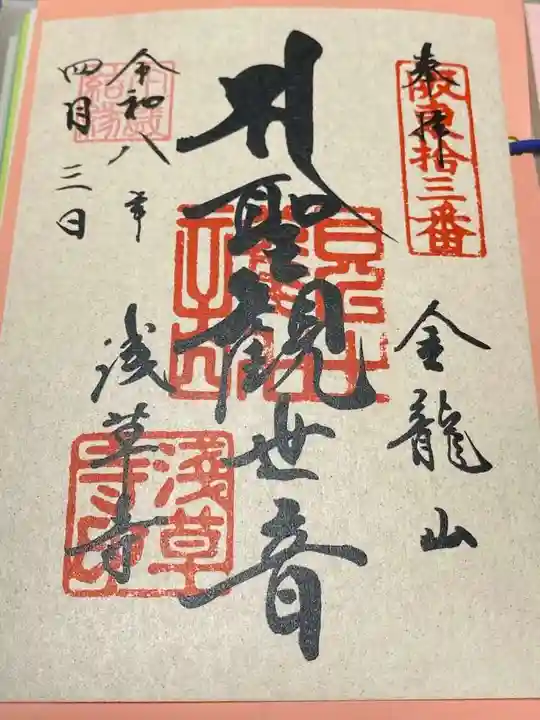 奉拝
阪東拾三番
金龍山
聖観世音
令和八年
四月三日
浅草寺
淺草寺印